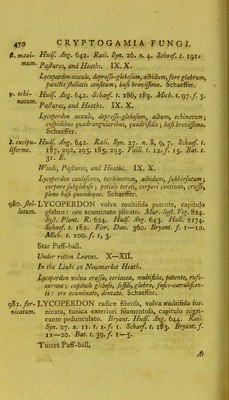 470 CRYPTOGAMIA FUNGI.
β. maxi- Hudſ. Ang. 642. Raii. Syn. 26. n. 4. Schaef. t. 191.
mum. Paſtures, and Heaths. IX. X.
Lycoperdon acaule, depreſſo-globoſum, albidum, fere glabrum,
punctis ſtellatis conſitum; baſi breviſſima. Schaeffer.
γ. echi- Hudſ. Ang. 642. Schaef. t. 186, 189. Mich. t. 97. f. 5.
natum. Paſtures, and Heaths. IX. X.
Lycoperdon acaule, depreſſo-globoſum, album, echinatum;
cuſpidibus quadrangularibus, quadrifidis; baſi breviſſima.
Schaeffer.
δ. excipu- Hudſ. Ang. 642. Raii. Syn. 27. n. 8, 9, 7. Schaef. t.
liforme. 187, 292, 295, 185, 293. Vaill. t. 12. f. 15. Bat. t.
31. E.
Woods, Paſtures, and Heaths. IX. X.
Lycoperdon cauleſcens, turbinatum, albidum, ſubhirſutum;
corpore ſubgloboſo; petiolo tereti, corpori continuo, craſſo,
plano baſi quandoque. Schaeffer.
980. ſtel- LYCOPERDON volva multifida patente, capitulo
latum. glabro: ore acuminato plicato. Mur. Syſt. Veg. 824.
Syſt. Plant. R. 624. Hudſ. Ang. 643. Hall. 2174.
Schaef. t. 182. Flor. Dan. 360. Bryant. f. 1—10.
Mich. t. 100. f. 1, 3.
Star Puff-ball.
Under rotten Leaves. X—XII.
In the Links on Newmarket Heath.
Lycoperdon volva craſſa, coriacea, multifida, patente, rufo-
carnea; capitulo globoſo, ſeſſili, glabro, fuſco-cærulſcen-
ti: ore acuminato, dentato. Schaeffer.
981. for- LYCOPERDON radice fibroſa, volva multifida for-
nicatum. nicata, tunica exteriori filamentoſa, capitulo nigri-
cante pedunculato. Bryant. Hudſ. Ang. 644. Raii.
Syn. 27. n. 11. t. 1. f. 1. Schaef. t. 183. Bryant. f.
11—20. Bat. t. 39. f. 1—5.
Turret Puff-ball.
At